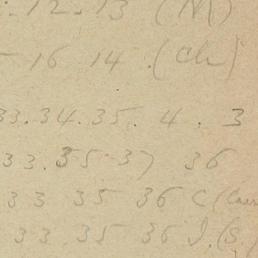 . 12. 13 (M)
- 16 14 . (Ch)
33. 34. 35. 4. 3
33. 35. 37 36
33 35 36 C (
33 35 36 J. (S